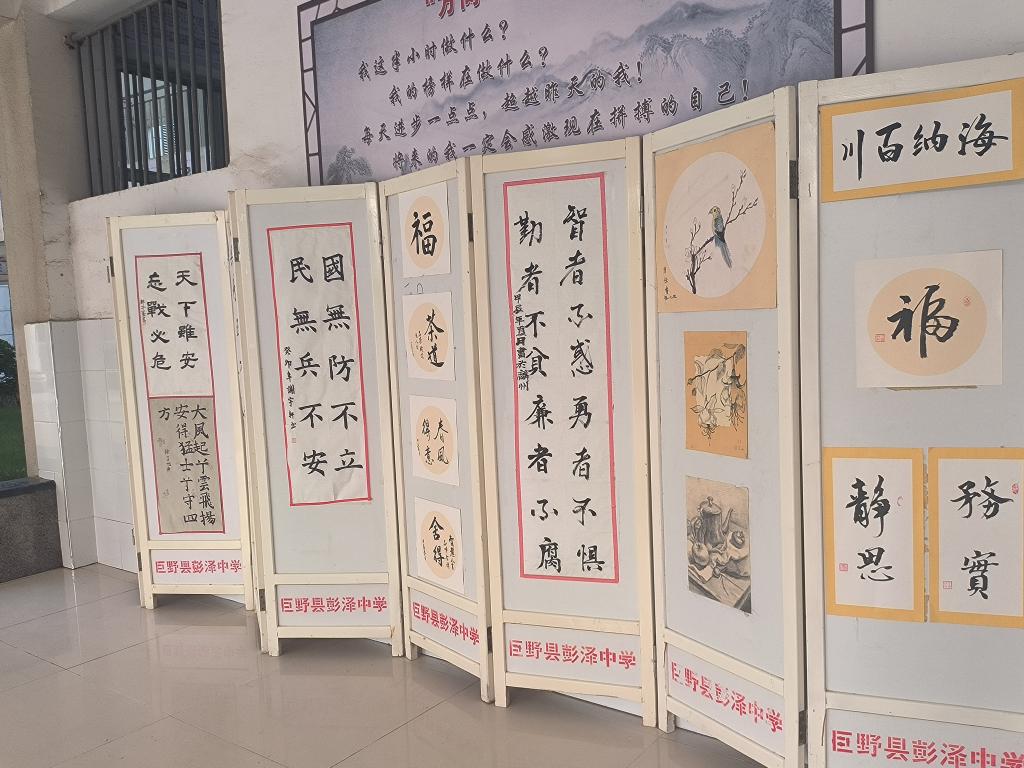 我这半小时做什么？
我的榜样在做什么？
每天进步一点点，超越昨天的我！
将来的我一定会感激现在拼搏的自己！
天下雖安
忘戰必危
大風起兮雲飛揚
安得猛士兮守四
方
巨野县彭泽中学
國無防不立
民無兵不安
巨野县彭泽中学
福
茶道
春風
得意
舍得
巨野县彭泽中学
智者不惑勇者不懼
勤者不貧廉者不腐
巨野县彭泽中学
巨野县彭泽中学
海纳百川
福
務實
靜思
巨野县彭泽中学